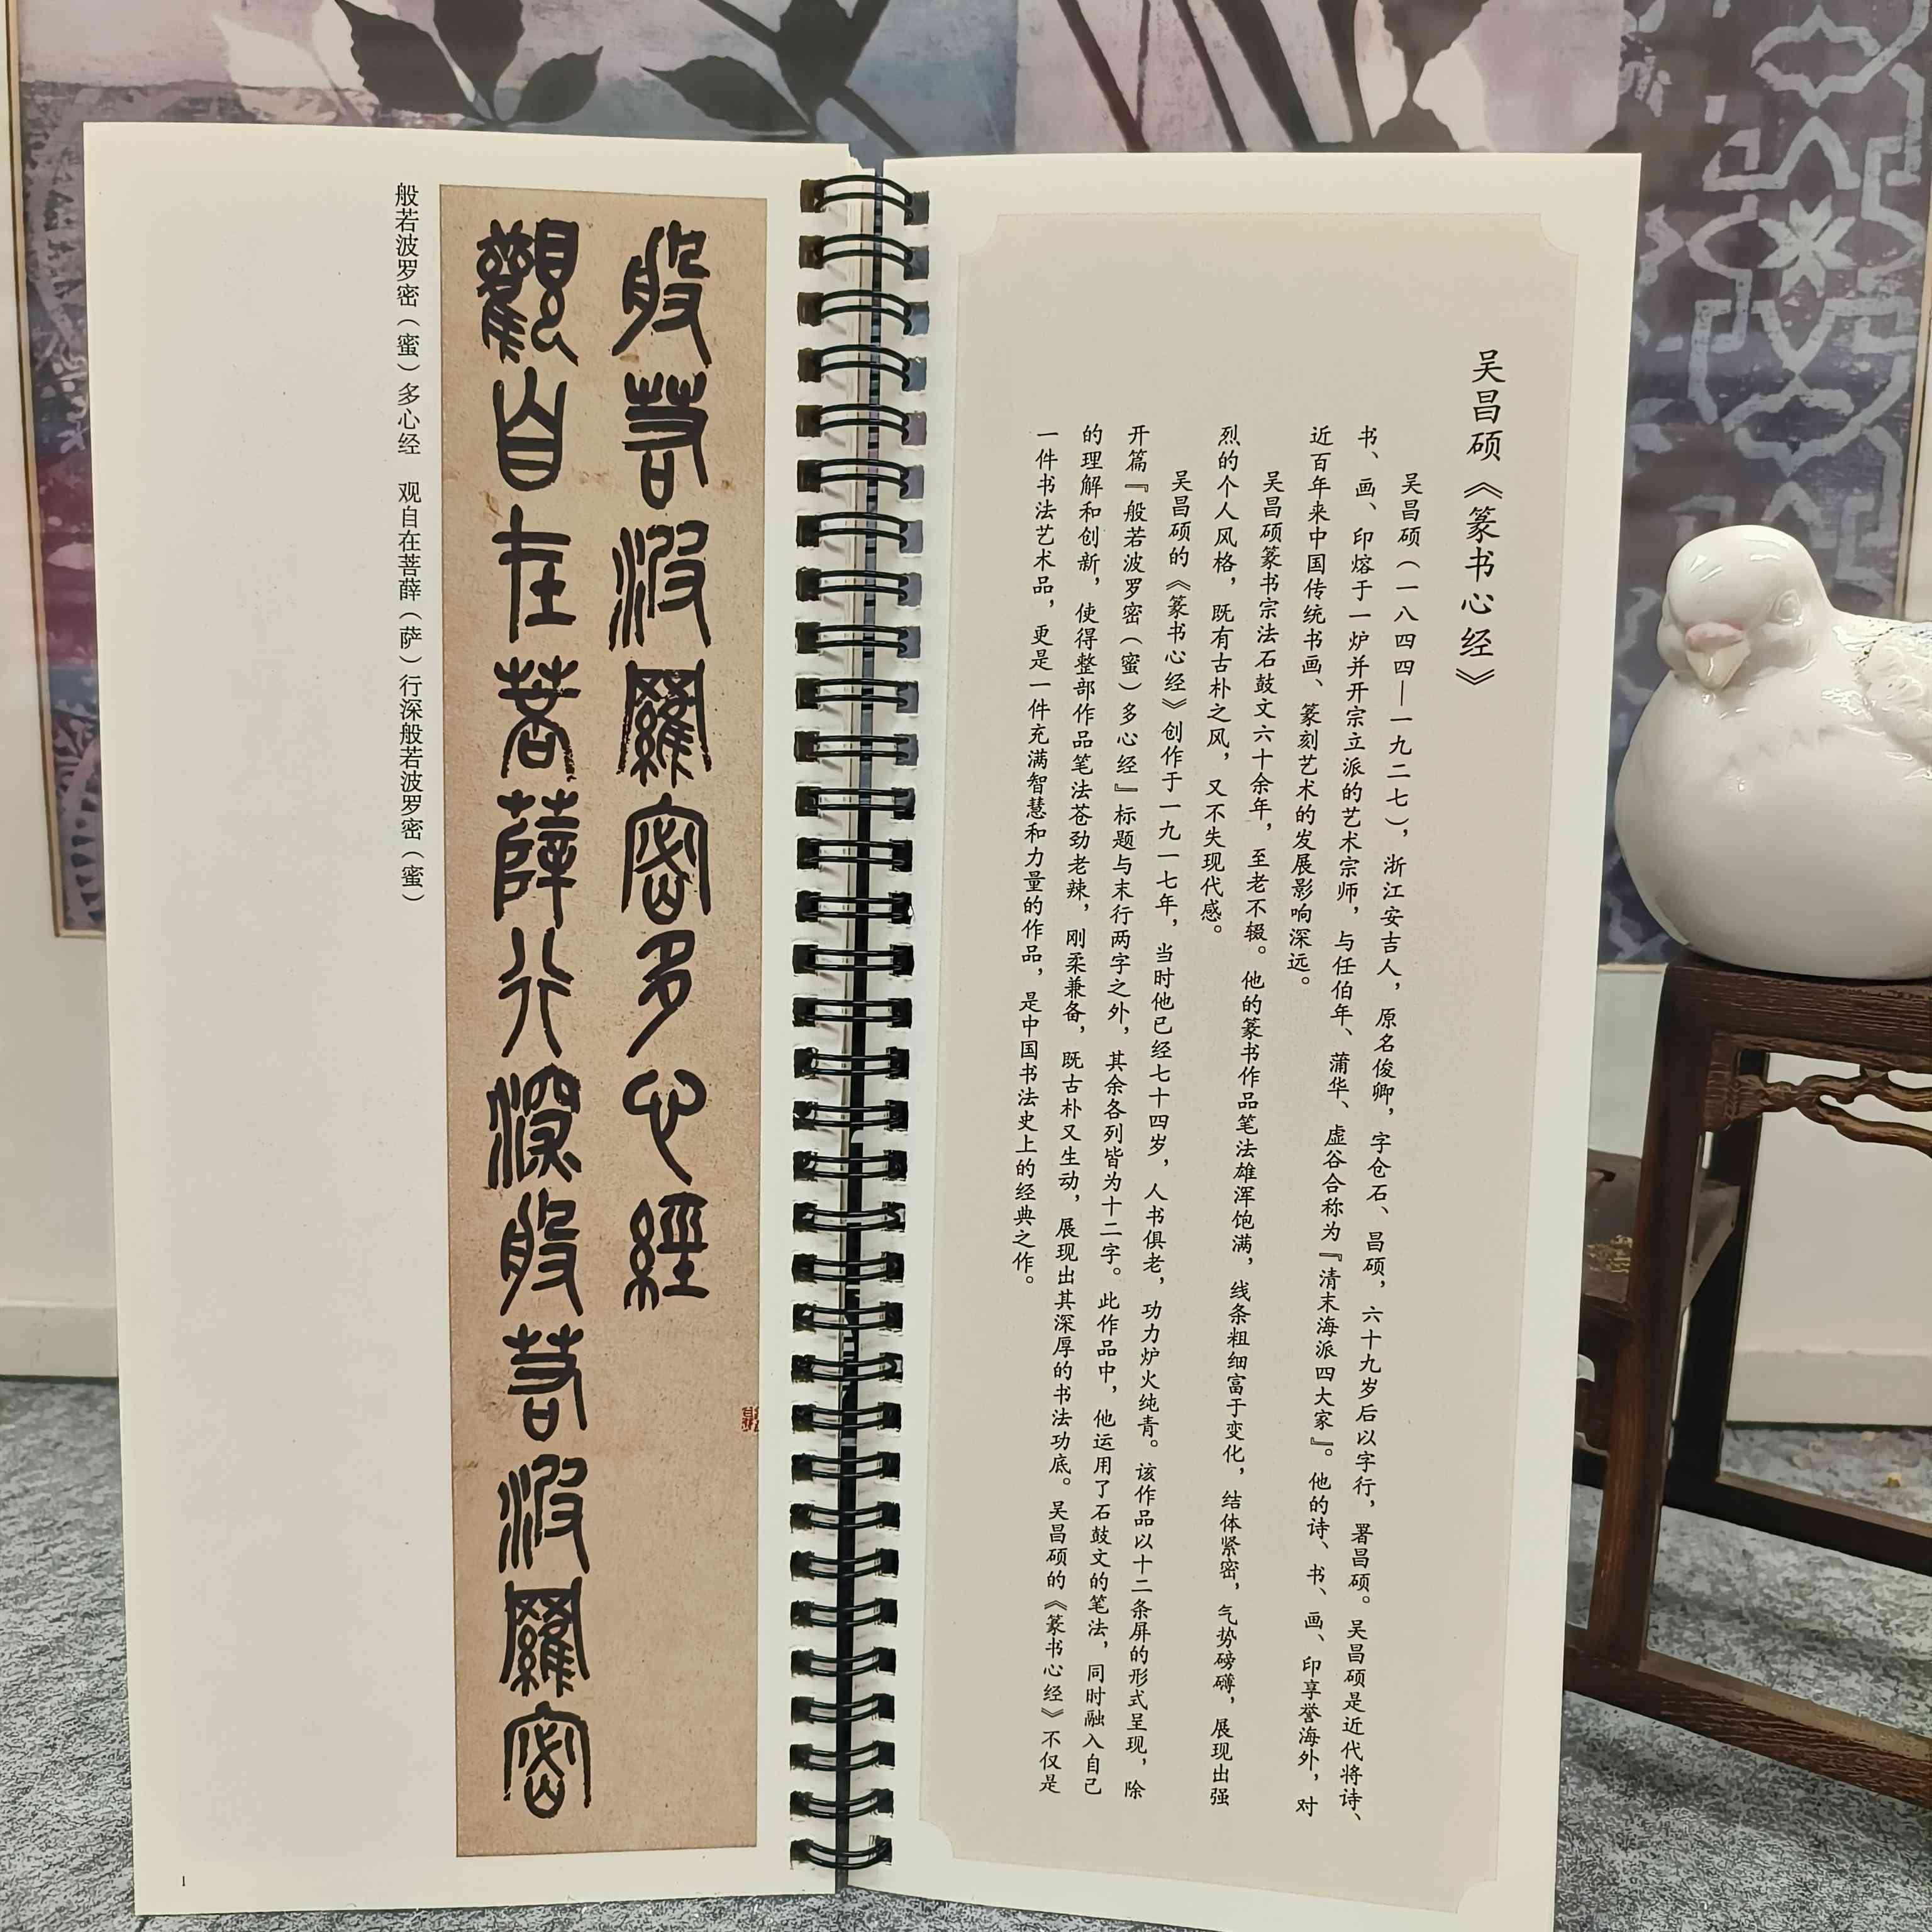 吴昌硕《篆书心经》
吴昌硕（一八四四—一九二七），浙江安吉人，原名俊卿，字仓石、昌硕，六十九岁后以字行，署昌硕。吴昌硕是近代将诗、
书、画、印熔于一炉并开宗立派的艺术宗师，与任伯年、蒲华、虚谷合称为『清末海派四大家』。他的诗、书、画、印享誉海外，对
近百年来中国传统书画、篆刻艺术的发展影响深远。
吴昌硕篆书宗法石鼓文六十余年，至老不辍。他的篆书作品笔法雄浑饱满，线条粗细富于变化，结体紧密，气势磅礴，展现出强
烈的个人风格，既有古朴之风，又不失现代感。
吴昌硕的《篆书心经》创作于一九一七年，当时他已经七十四岁，人书俱老，功力炉火纯青。该作品以十二条屏的形式呈现，除
开篇『般若波罗密（蜜）多心经』标题与末行两字之外，其余各列皆为十二字。此作品中，他运用了石鼓文的笔法，同时融入自己
的理解和创新，使得整部作品笔法苍劲老辣，刚柔兼备，既古朴又生动，展现出其深厚的书法功底。吴昌硕的《篆书心经》不仅是
一件书法艺术品，更是一件充满智慧和力量的作品，是中国书法史上的经典之作。
般若波羅密多心經
觀自在菩薛行深般若波羅密
般若波罗密（蜜）多心经　观自在菩薛（萨）行深般若波罗密（蜜）
1